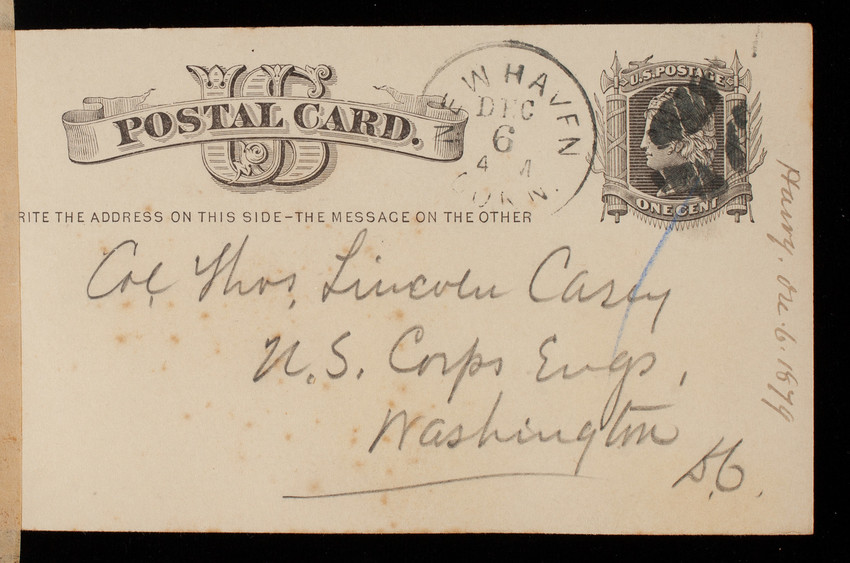 US
POSTAL CARD.
NEW HAVEN
DEC
6
4 M
CONN.
U.S. POSTAGE
ONE CENT
RITE THE ADDRESS ON THIS SIDE-THE MESSAGE ON THE OTHER
Col Thos. Lincoln Casey
U.S. Corps Engs,
Washington
D.C.
Harry, Dec. 6. 1879